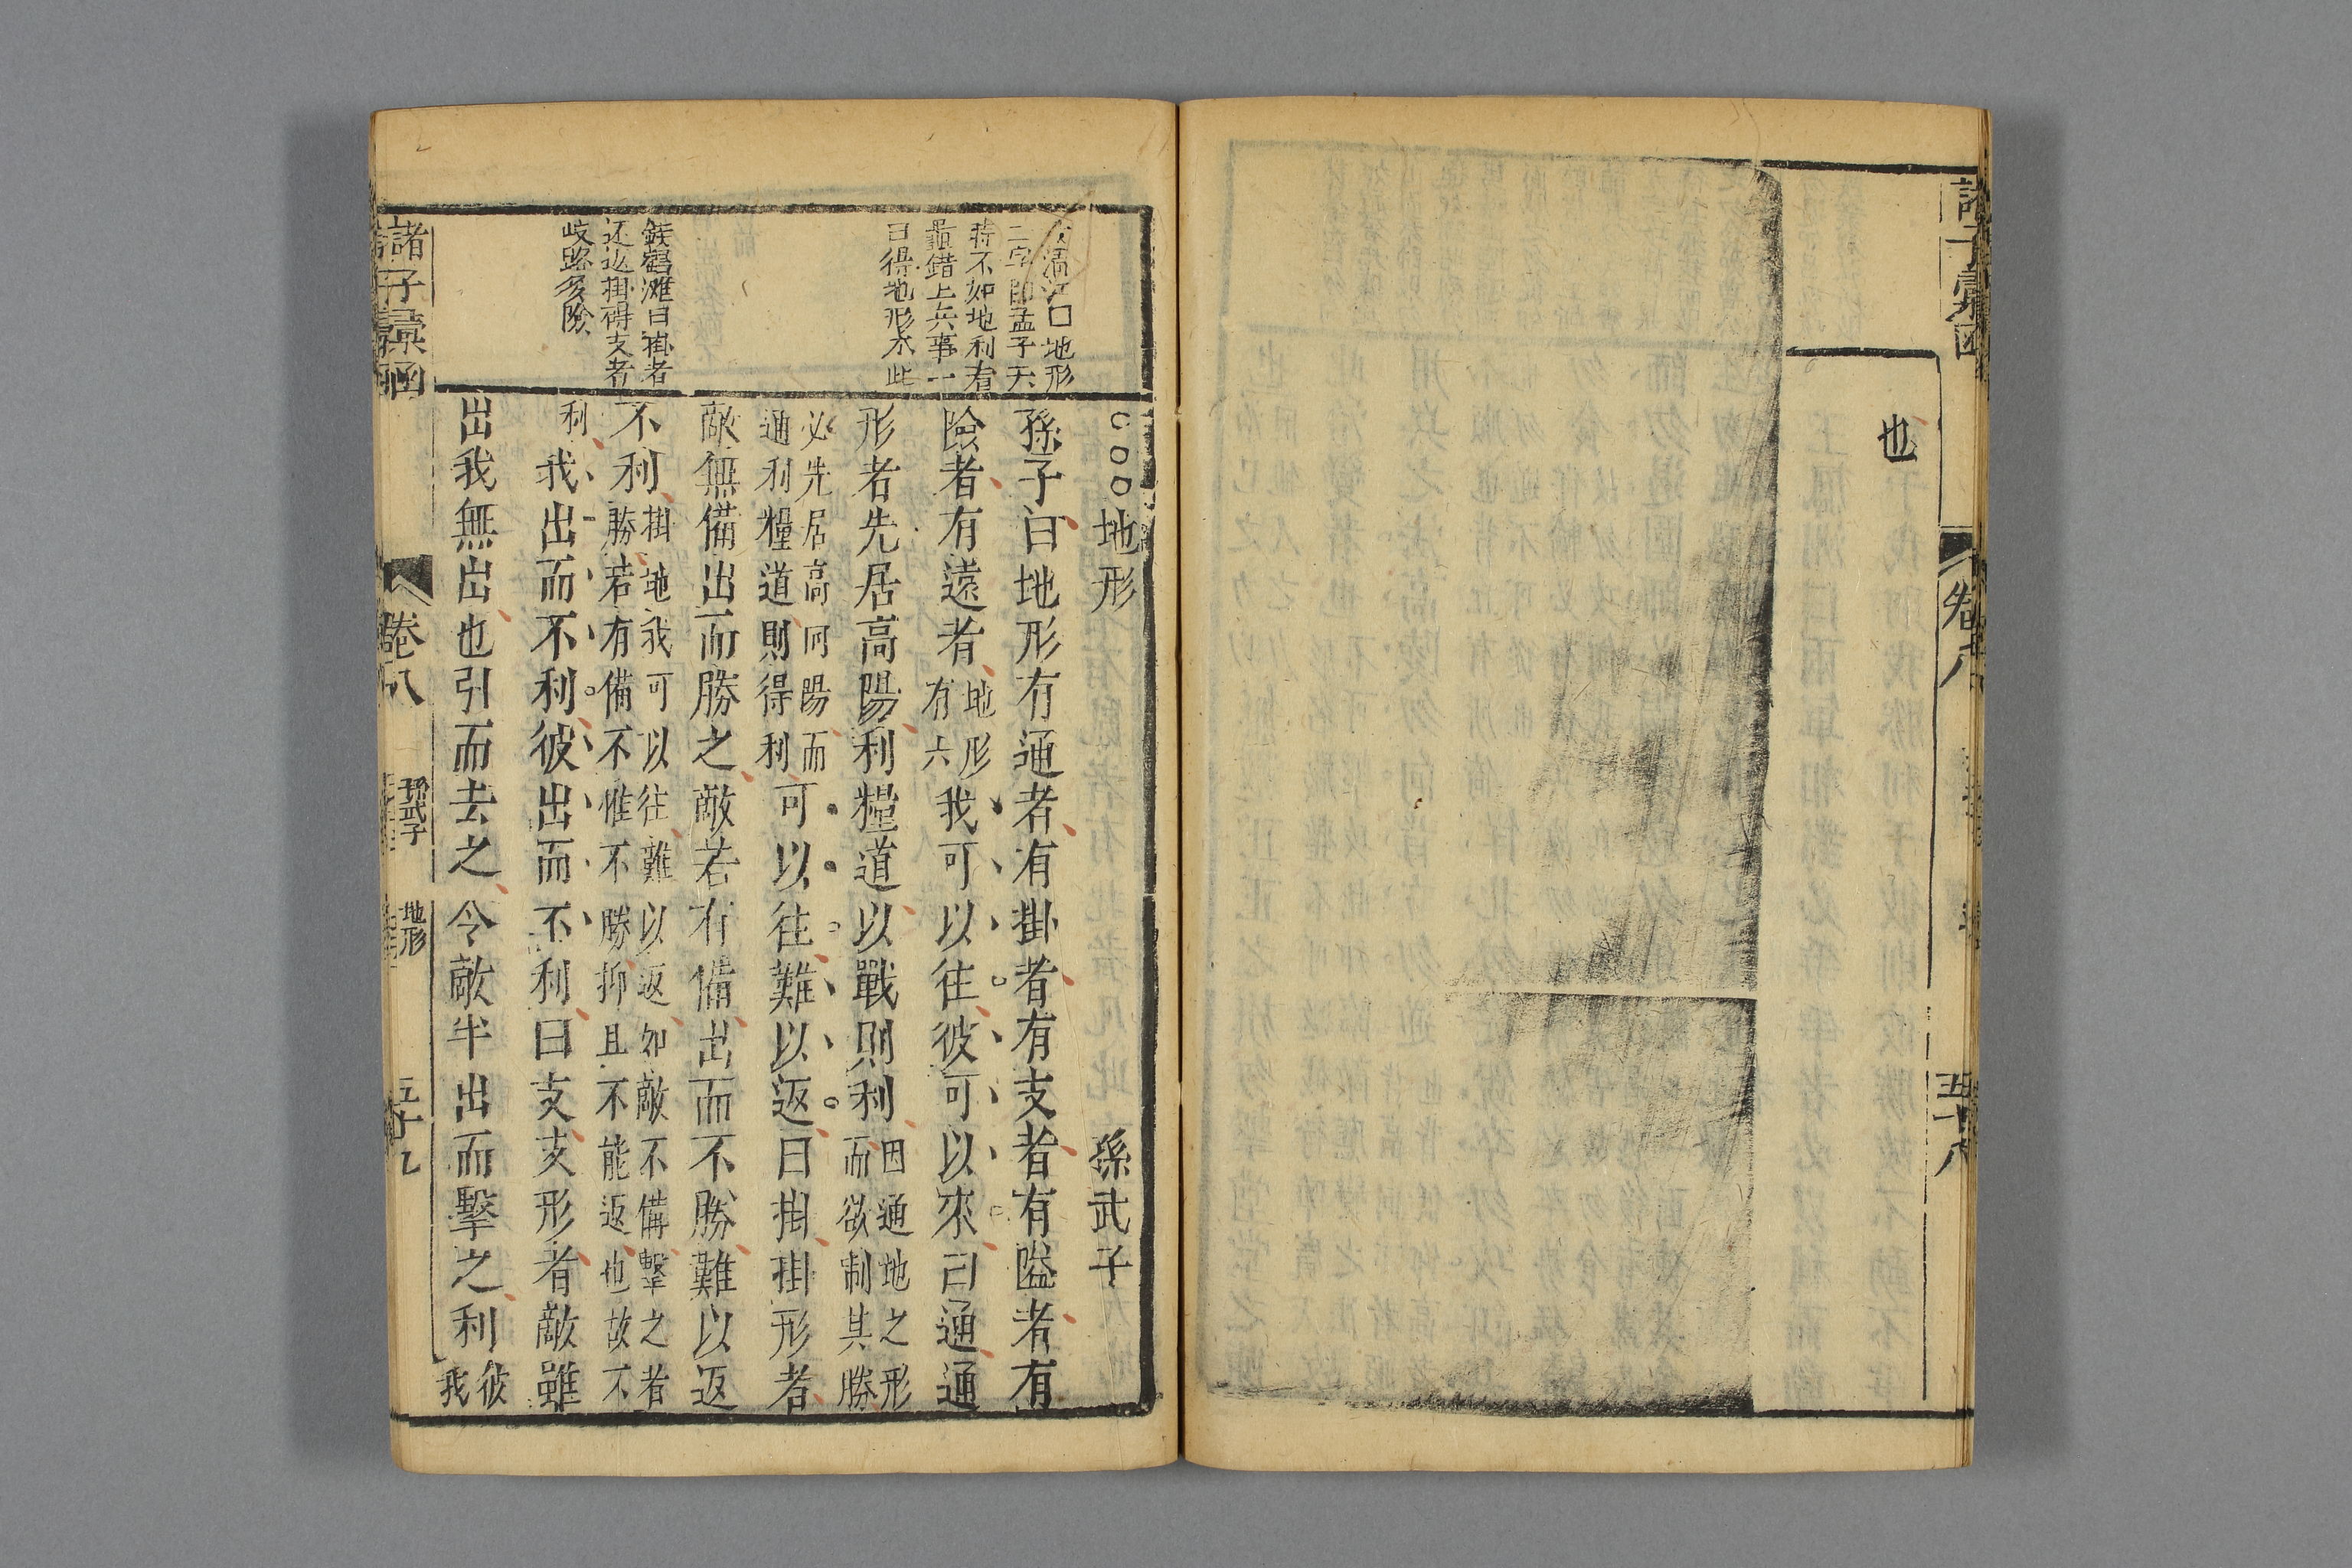 諸子彙函
卷八
五十八
也
地形
孫武子
孫子曰地形有通者有掛者有支者有隘者有
險者有遠者地形有六我可以往彼可以來曰通通
形者先居高陽利糧道以戰則利因通地之形而欲制其勝
必先居高向陽而通利糧道則得利可以往難以返曰掛掛形者
敵無備出而勝之敵若有備出而不勝難以返
不利掛地我可以往難以返如敵不備擊之者勝若有備不惟不勝抑且不能返也故不
利我出而不利彼出而不利曰支支形者敵雖
出我無出也引而去之令敵半出而擊之利彼我
地形
二字即孟子天
時不如地利看
鼂錯上兵事一
曰得地形本此
錢鶴灘曰掛者
还返掛碍支者
岐路多險
諸子彙函
卷八
孫武子
地形
五十九